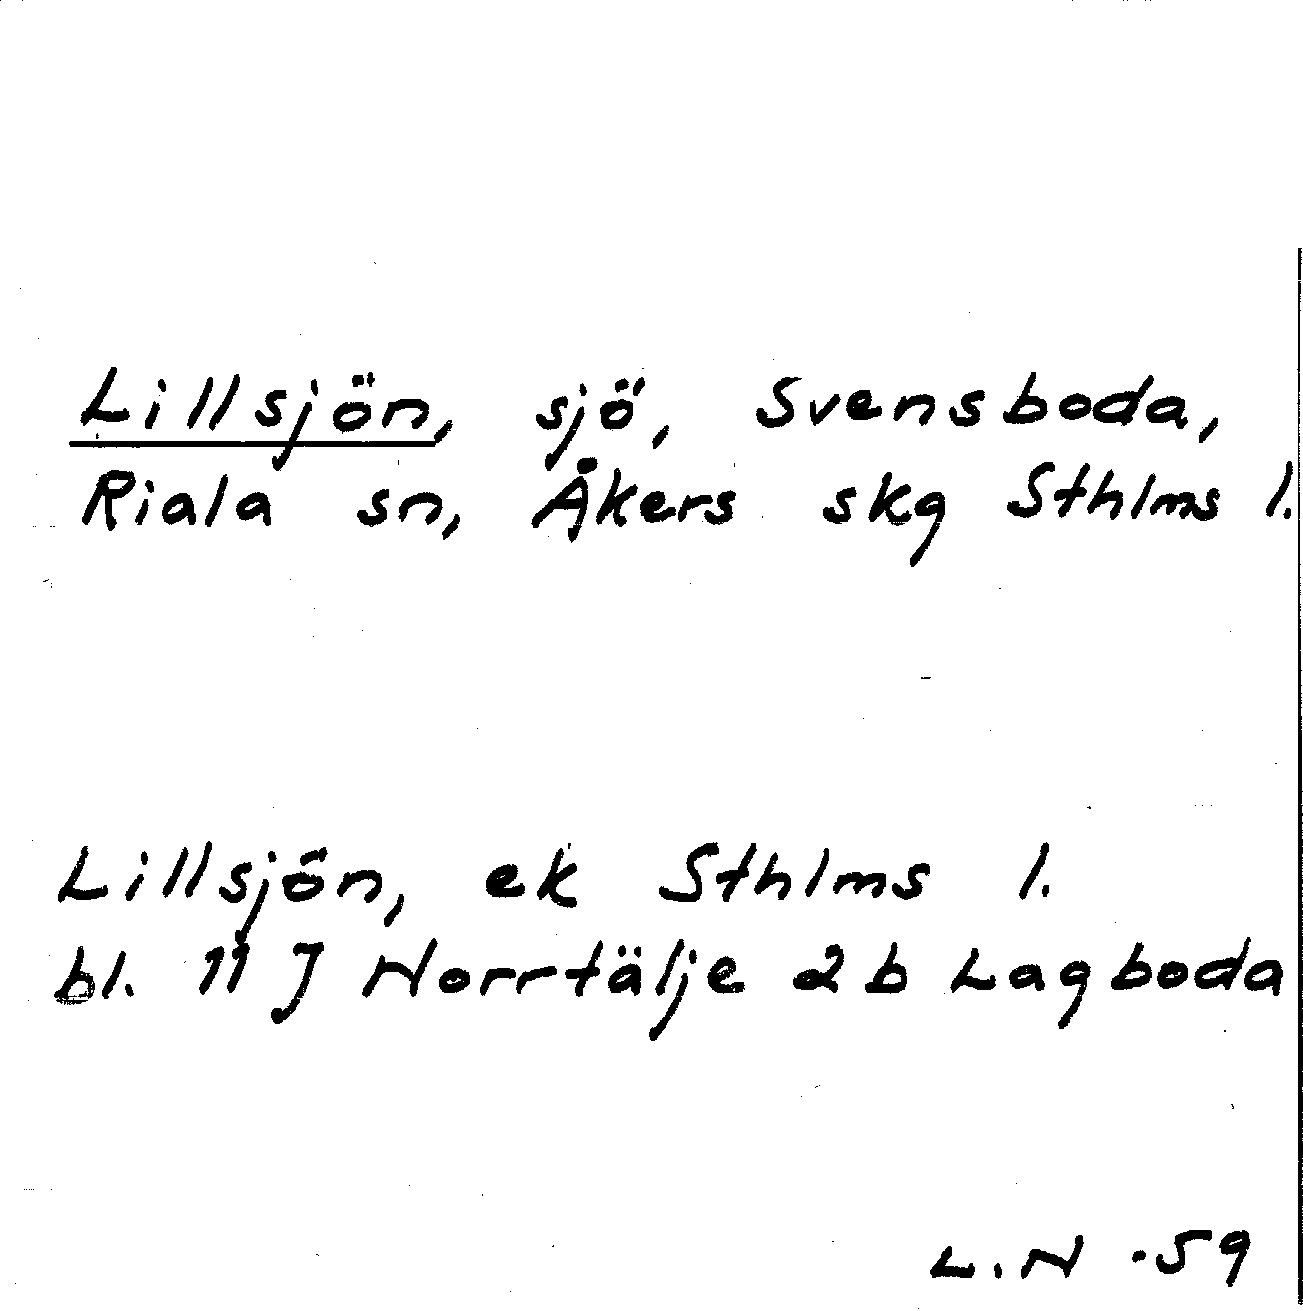 Lillsjön, sjö, Svensboda,
Riala sn, Åkers skg Sthlms l.
Lillsjön, ek Sthlms l.
bl. 11 J Norrtälje 2 b Lagboda
L.N .59